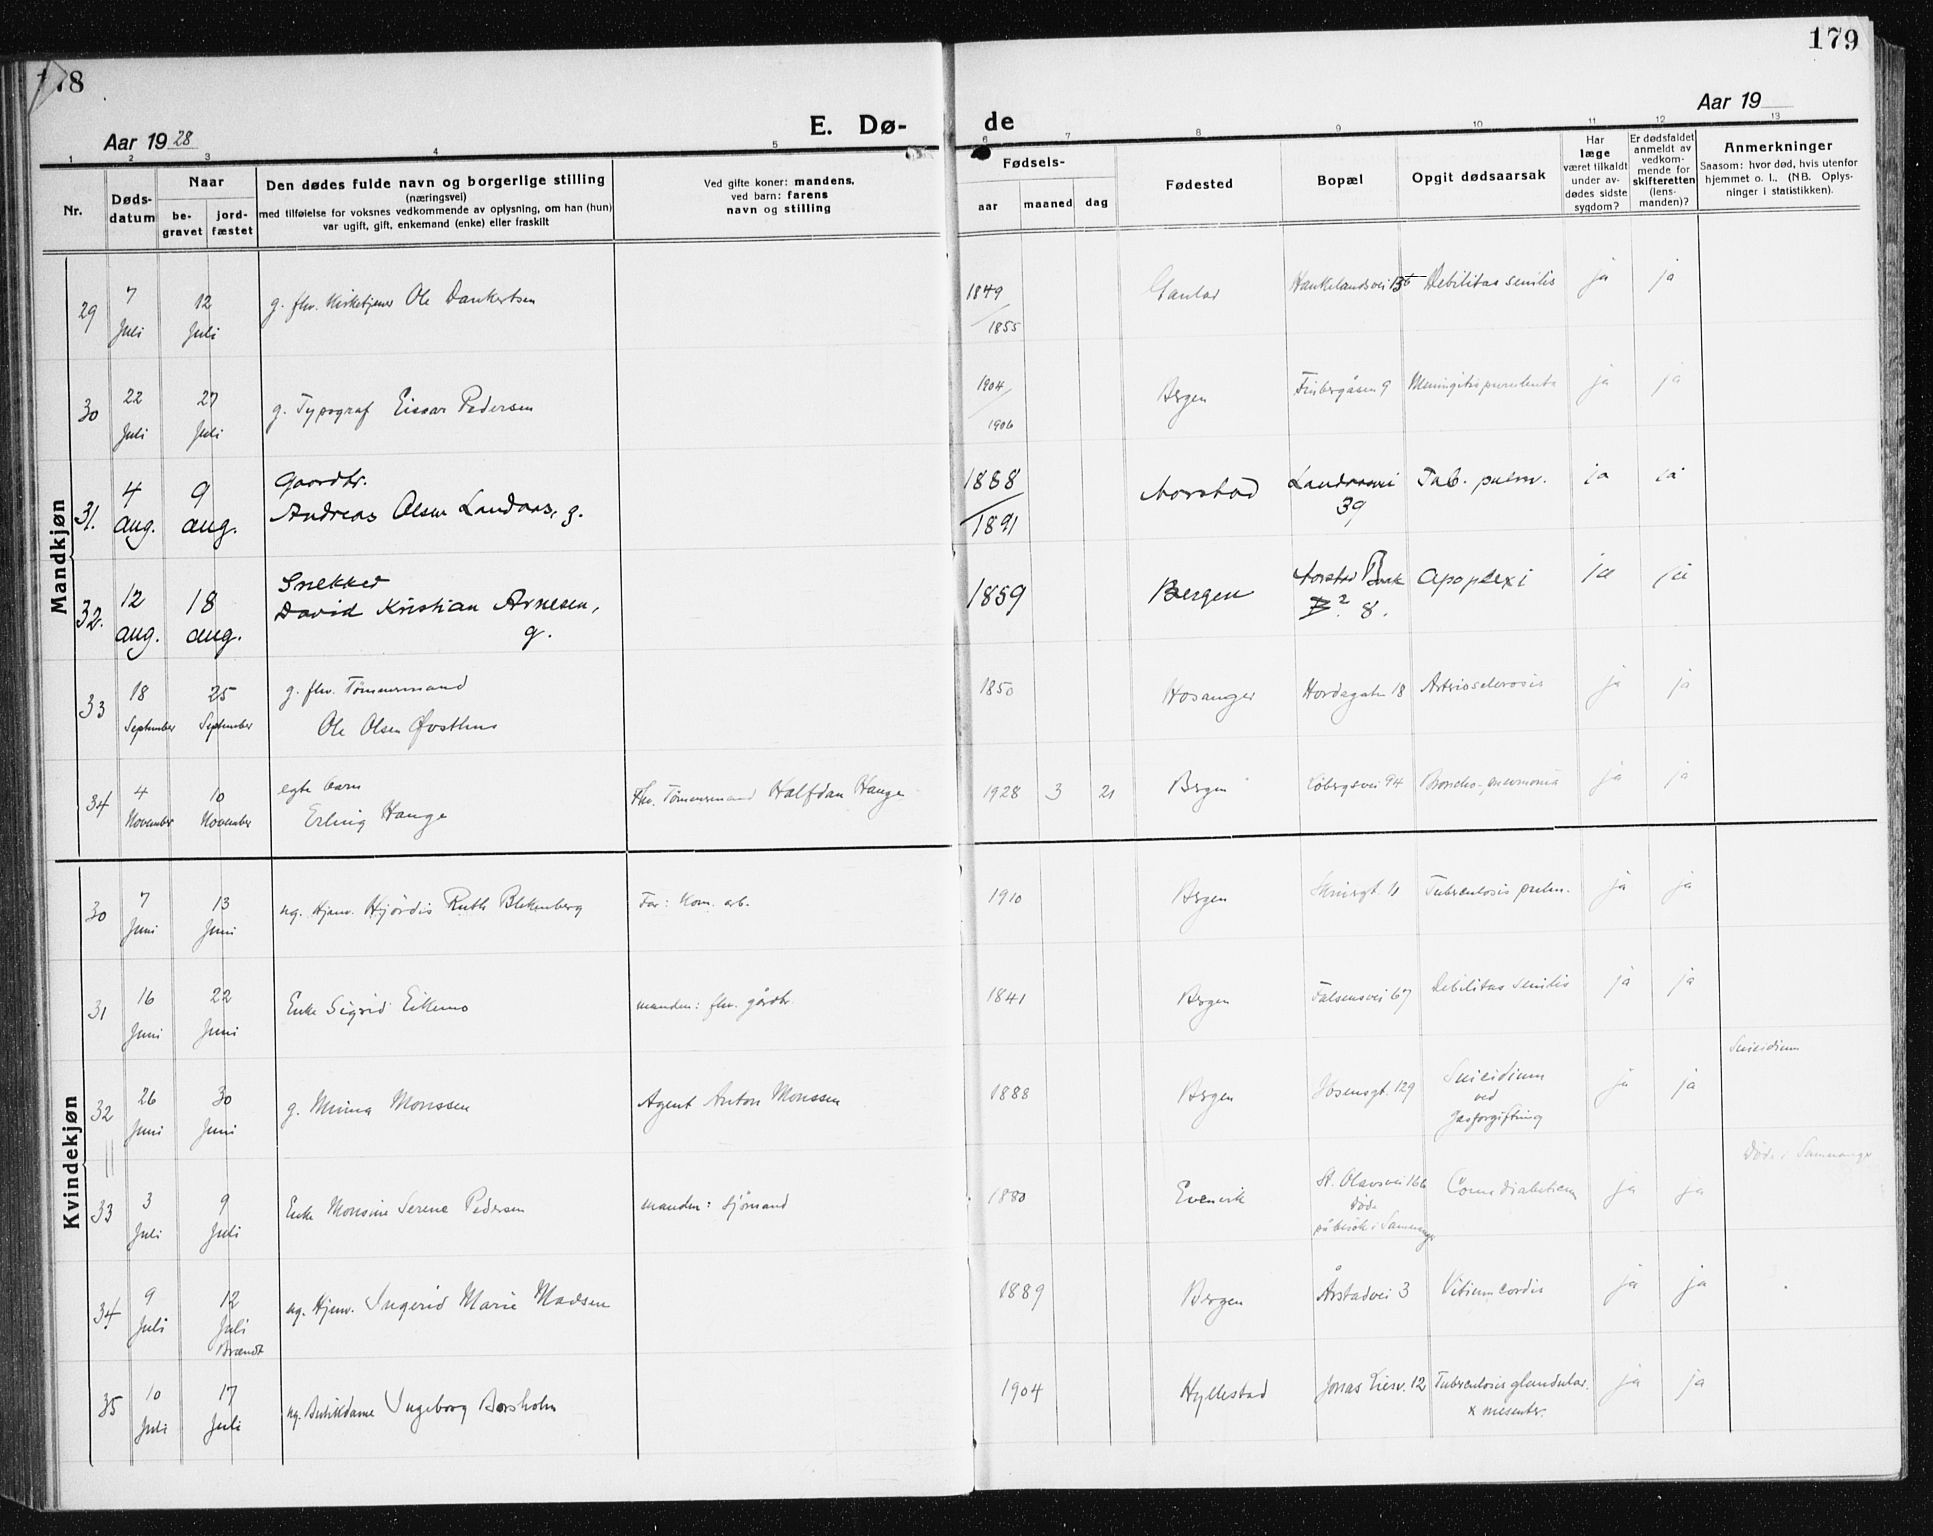 178
179
Aar 1928
E. Dø-
de
Aar 19
1 2 3 4 5 6 7 8 9 10 11 12 13
Nr.
Døds-
datum
Naar
be-
gravet
jord-
fæstet
Den dødes fulde navn og borgerlige stilling
(næringsvei)
med tilføielse for voksnes vedkommende av oplysning, om han (hun)
var ugift, gift, enkemand (enke) eller fraskilt
Ved gifte koner: mandens,
ved barn: farens
navn og stilling
Fødsels-
aar maaned dag
Fødested
Bopæl
Opgit dødsaarsak
Har
læge
været tilkaldt
under av-
dødes sidste
sygdom?
Er dødsfaldet
anmeldt av
vedkom-
mende for
skifteretten
(lens-
manden)?
Anmerkninger
Saasom: hvor død, hvis utenfor
hjemmet o. l., (NB. Oplys-
ninger i statistikken).
Mandkjøn
29 7 Juli 12 Juli g. fhv. Kirketjener Ole Dankertsen 1849 / 1855 Haukelandsvei Debilitas senilis ja ja
30 22 Juli 27 Juli g. Typograf Pedersen 1904 / 1906 Bergen 9 Meningitis purulenta ja ja
31. 4 aug. 9 aug. Gaardbr.
Andreas Olsen Landaas, g. 1888 / 1891 Aarstad Landaasvei 39 Tub. pulm. ja ja
32. 12 aug. 18 aug. Snekker
David Kristian Arnesen, g. 1859 Bergen Aarstad 8. Apoplexi ja ja
33 18 September 25 September g. fhv. Tømmermand
Ole Olsen Øvsthus 1850 Hosanger Hordagaten 18 Arteriosclerosis ja ja
34 4 November 10 November egte barn
Erling Hauge Fhv. Tømmermand Halfdan Hauge 1928 3 21 Bergen 94 Broncho-pneumonia ja ja
Kvindekjøn
30 7 Juni 13 Juni ug. Hjemv. Hjördis Ruth Blekenberg Far: Kom. arb. 1910 Bergen Tuberculosis pulm. ja ja
31 16 Juni 22 Juni Enke Sigrid Eikemo manden: fhv. gårdbr. 1841 Bergen Falsensvei 67 Debilitas senilis ja ja
32 26 Juni 30 Juni g. Minna Monssen Agent Anton Monssen 1888 Bergen Ibsensgt. 129 Suicidium
ved
gasforgiftning ja ja Suicidium
33 3 Juli 9 Juli Enke Monsine Serene Pedersen manden: sjömand 1880 Evenvik St. Olavsvei 16b
Döde
på besök i Samnanger Coma diabeticum ja ja Döde i Samnanger
34 9 Juli 12 Juli
Brændt ug. Hjemv. Ingerid Marie Madsen 1889 Bergen Årstadvei 3 Vitium cordis ja ja
35 10 Juli 17 Juli ug. Butikdame Ingeborg Aarsholm 1904 Hyllestad Jonas Liesv. 12 Tuberculosis glandular.
x mesenter. ja ja